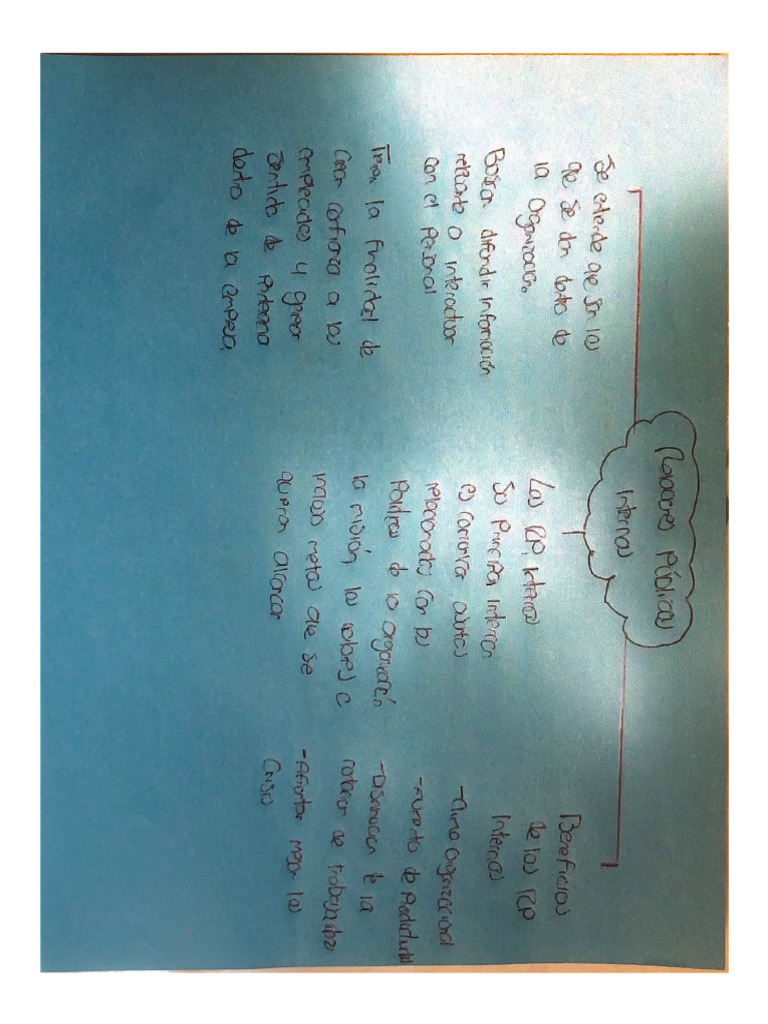 Relaciones Públicas
Internas
Se entiende que son las
que se dan dentro de
la Organización.
Buscan difundir información
relevante o interactuar
con el Personal
Tienen la finalidad de
Crear confianza a los
empleados y generar
Sentido de Pertenencia
dentro de la empresa.
Las RP, internas
Su Principal Intención
es comunicar asuntos
relacionados con las
Políticas de la organización
la misión, los valores e
incluso metas que se
quieran alcanzar
Beneficios
de las RP
Internas
-Clima Organizacional
-Aumento de Productividad
-Disminución de la
rotación de trabajadores
-Afrontar mejor las
Crisis